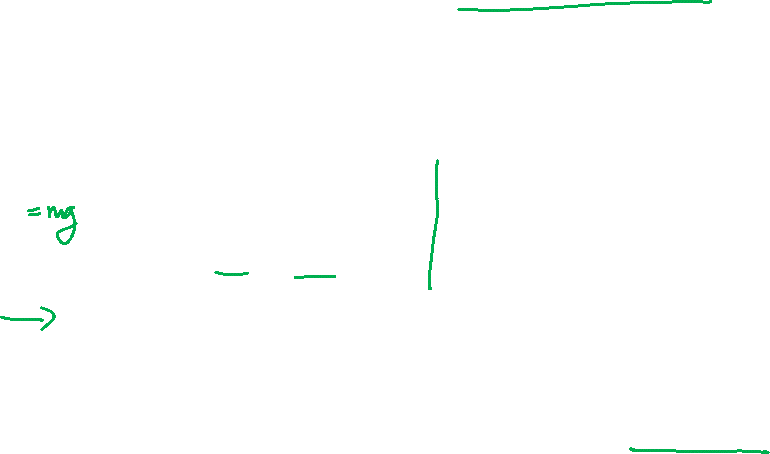 = mg